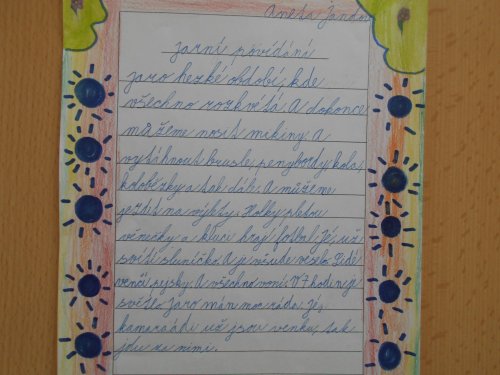 Aneta Jandov
Jarní povídání
Jaro hezké období, kde
všechno rozkvétá. A dokonce
můžeme nosit mikiny. A
vytáhnout brusle, penybordy, kola,
koloběžky a tak dál. A můžeme
jezdit na výlety. Holky pletou
věnečky a kluci hrají fotbal. Je už
svítí sluníčko. A je všude veselo. Lidé
venčí pejsky. A všechno voní. V 7 hodin je
světlo. Jaro mám moc ráda. Jé,
kamarádi už jsou venku, tak
jdu za nimi.